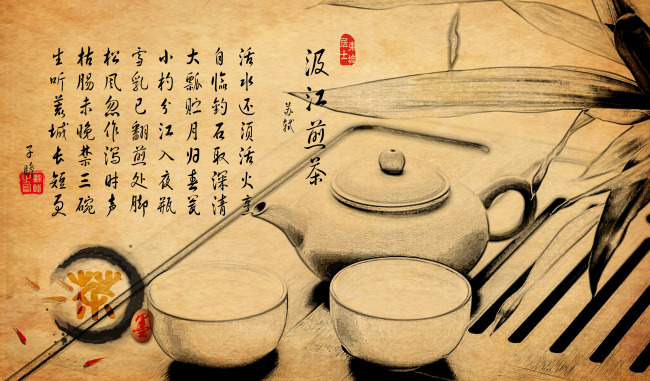 東坡居士
汲江煎茶
苏轼
活水还须活火烹
自临钓石取深清
大瓢贮月归春瓮
小杓分江入夜瓶
雪乳已翻煎处脚
松风忽作泻时声
枯腸未晚禁三碗
生听荒城长短更
子瞻
茶